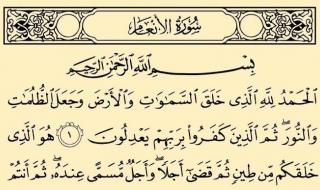 سُورَةُ الأَنْعَام
بِسْمِ اللَّهِ الرَّحْمَٰنِ الرَّحِيمِ
الْحَمْدُ لِلَّهِ الَّذِي خَلَقَ السَّمَٰوَٰتِ وَالْأَرْضَ وَجَعَلَ الظُّلُمَٰتِ
وَالنُّورَ ۖ ثُمَّ الَّذِينَ كَفَرُوا بِرَبِّهِمْ يَعْدِلُونَ ١ هُوَ الَّذِي
خَلَقَكُمْ مِّن طِينٍ ثُمَّ قَضَىٰ أَجَلًا ۖ وَأَجَلٌ مُّسَمًّى عِندَهُ ۖ ثُمَّ أَنتُمْ